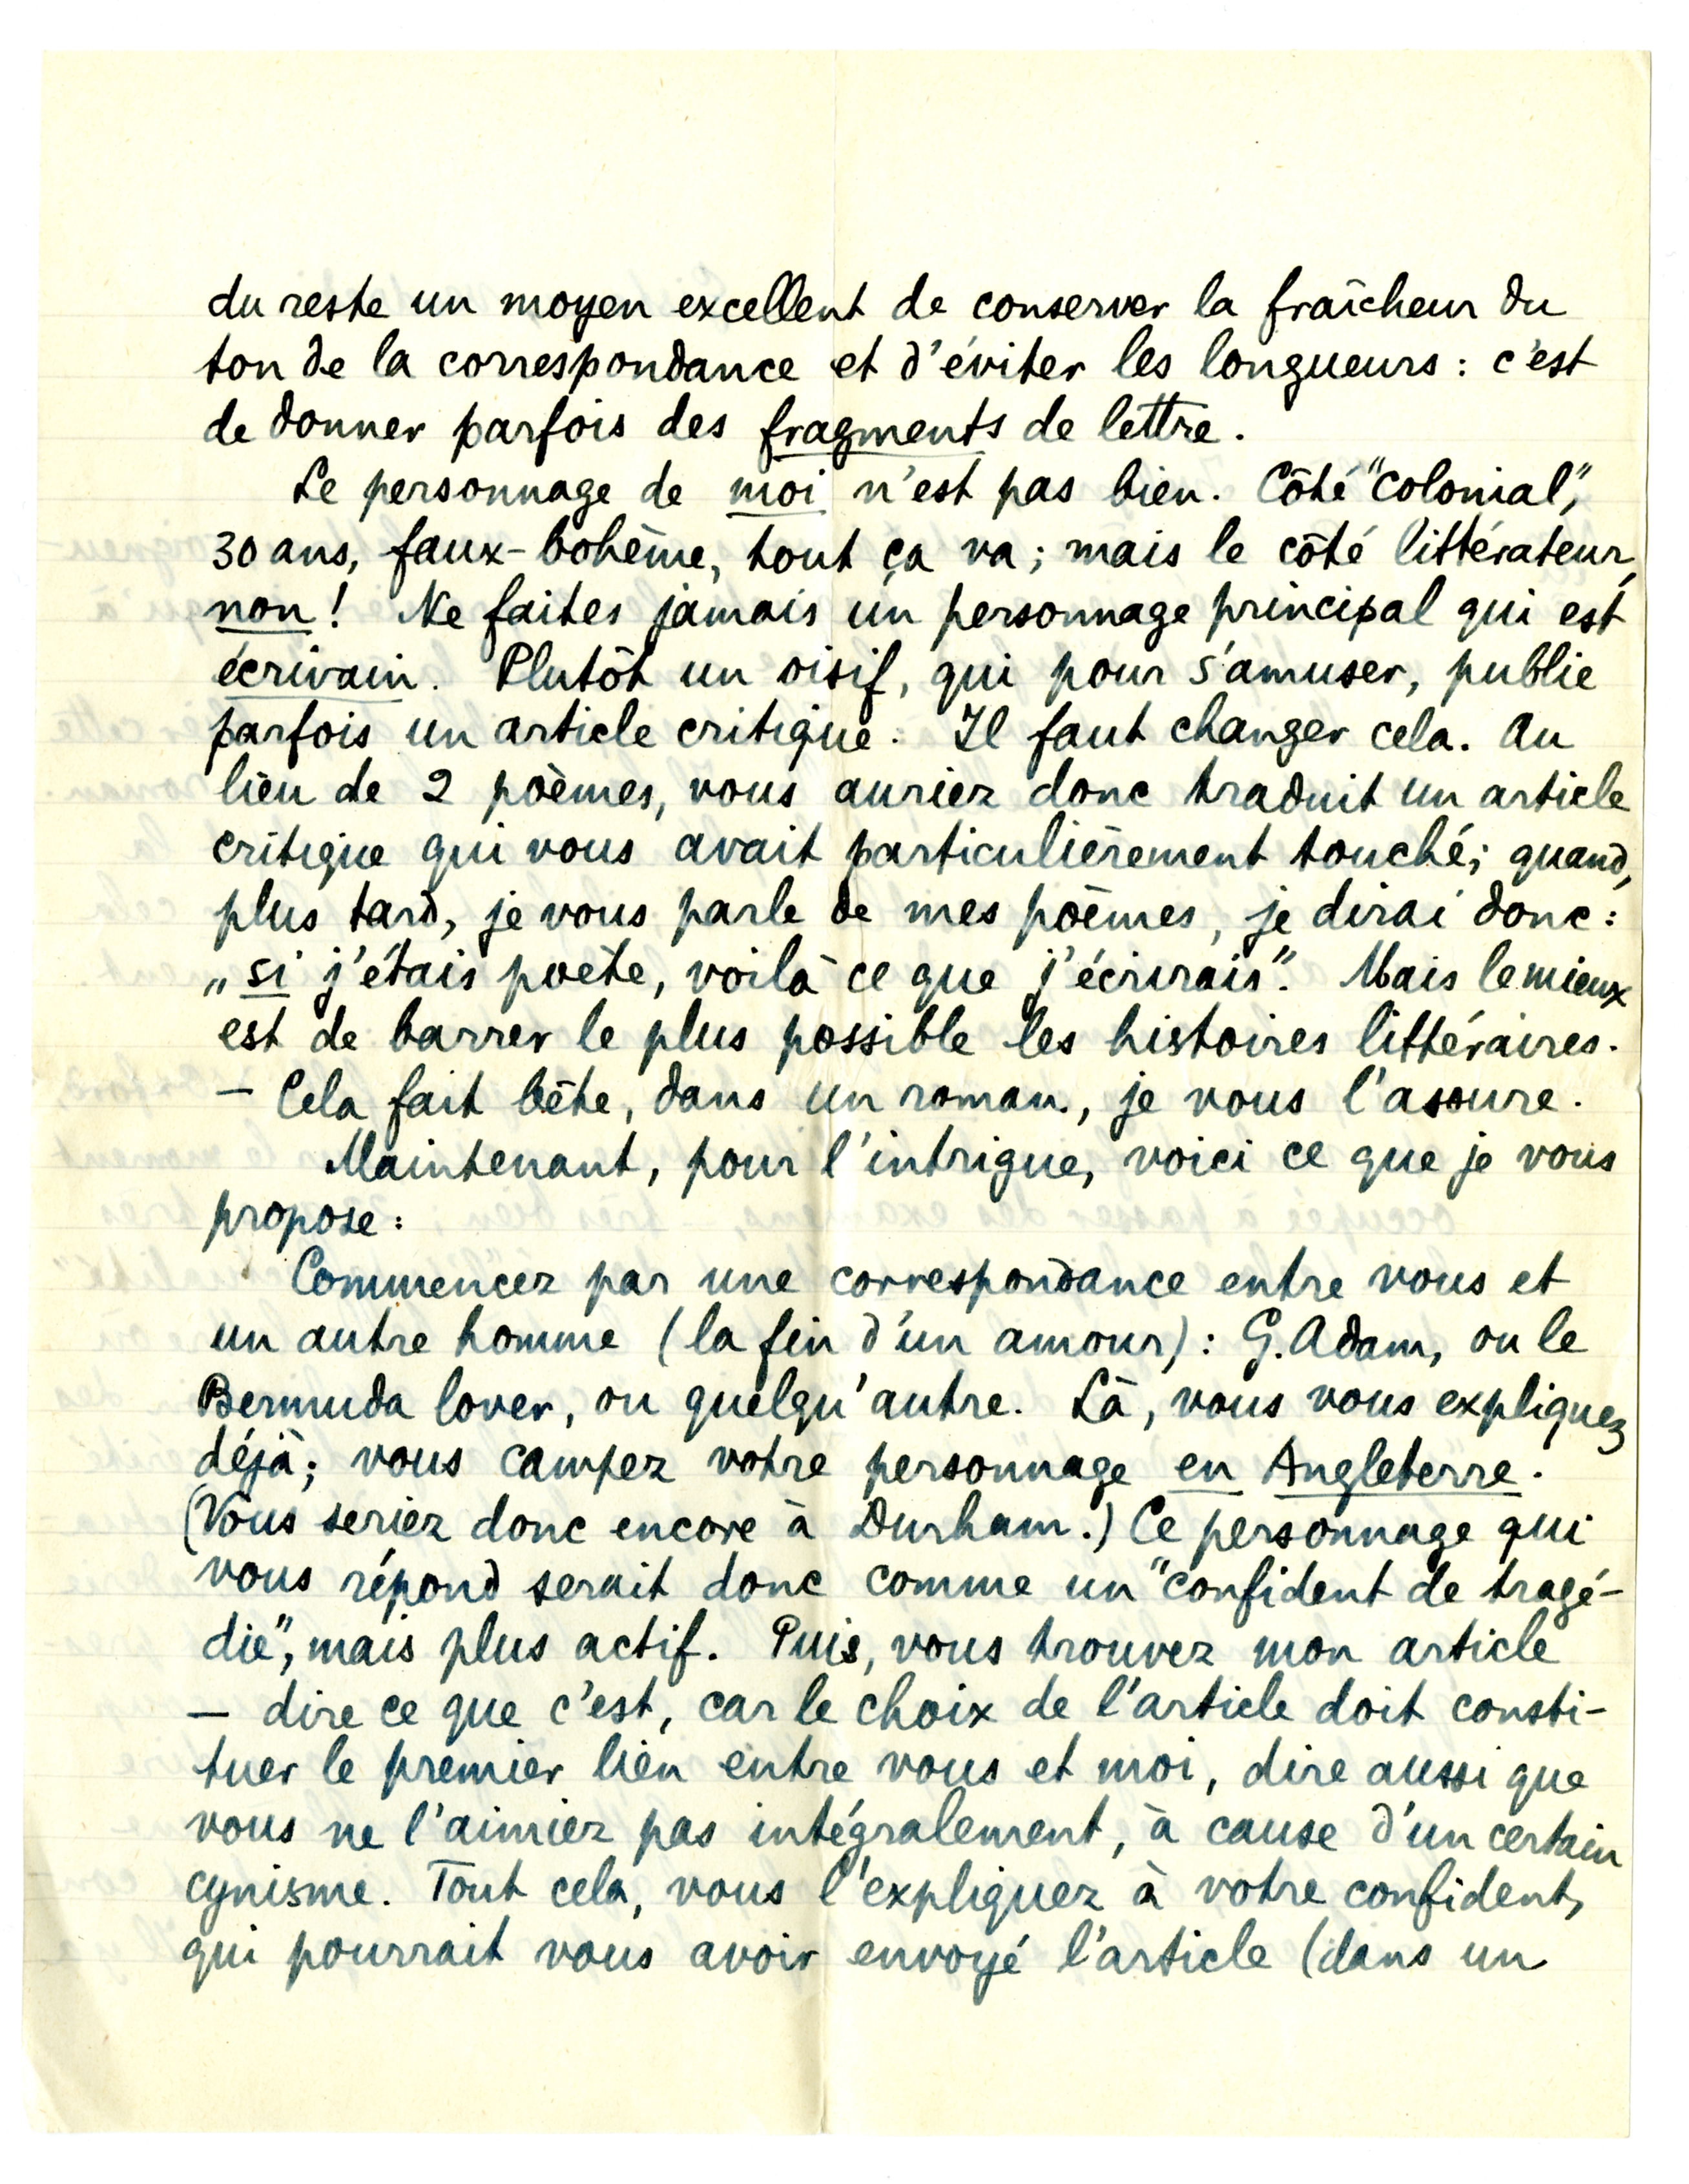 du reste un moyen excellent de conserver la fraîcheur du
ton de la correspondance et d'éviter les longueurs : c'est
de donner parfois des fragments de lettre.
Le personnage de moi n'est pas bien. Côté "colonial",
30 ans, faux-bohème, tout ça va ; mais le côté littérateur,
non ! Ne faites jamais un personnage principal qui est
écrivain. Plutôt un oisif, qui pour s'amuser, publie
parfois un article critique. Il faut changer cela. Au
lieu de 2 poèmes, vous auriez donc traduit un article
critique qui vous avait particulièrement touché ; quand,
plus tard, je vous parle de mes poèmes, je dirai donc :
„si j'étais poète, voilà ce que j'écrirais". Mais le mieux
est de barrer le plus possible les histoires littéraires.
— Cela fait bête, dans un roman, je vous l'assure.
Maintenant, pour l'intrigue, voici ce que je vous
propose :
Commencez par une correspondance entre vous et
un autre homme (la fin d'un amour) : G. Adam, ou le
Bermuda lover, ou quelqu'autre. Là, vous vous expliquez
déjà ; vous campez votre personnage en Angleterre.
(Vous seriez donc encore à Durham.) Ce personnage qui
vous répond serait donc comme un "confident de tragé-
die", mais plus actif. Puis, vous trouvez mon article
— dire ce que c'est, car le choix de l'article doit consti-
tuer le premier lien entre vous et moi, dire aussi que
vous ne l'aimiez pas intégralement, à cause d'un certain
cynisme. Tout cela, vous l'expliquez à votre confident,
qui pourrait vous avoir envoyé l'article (dans un